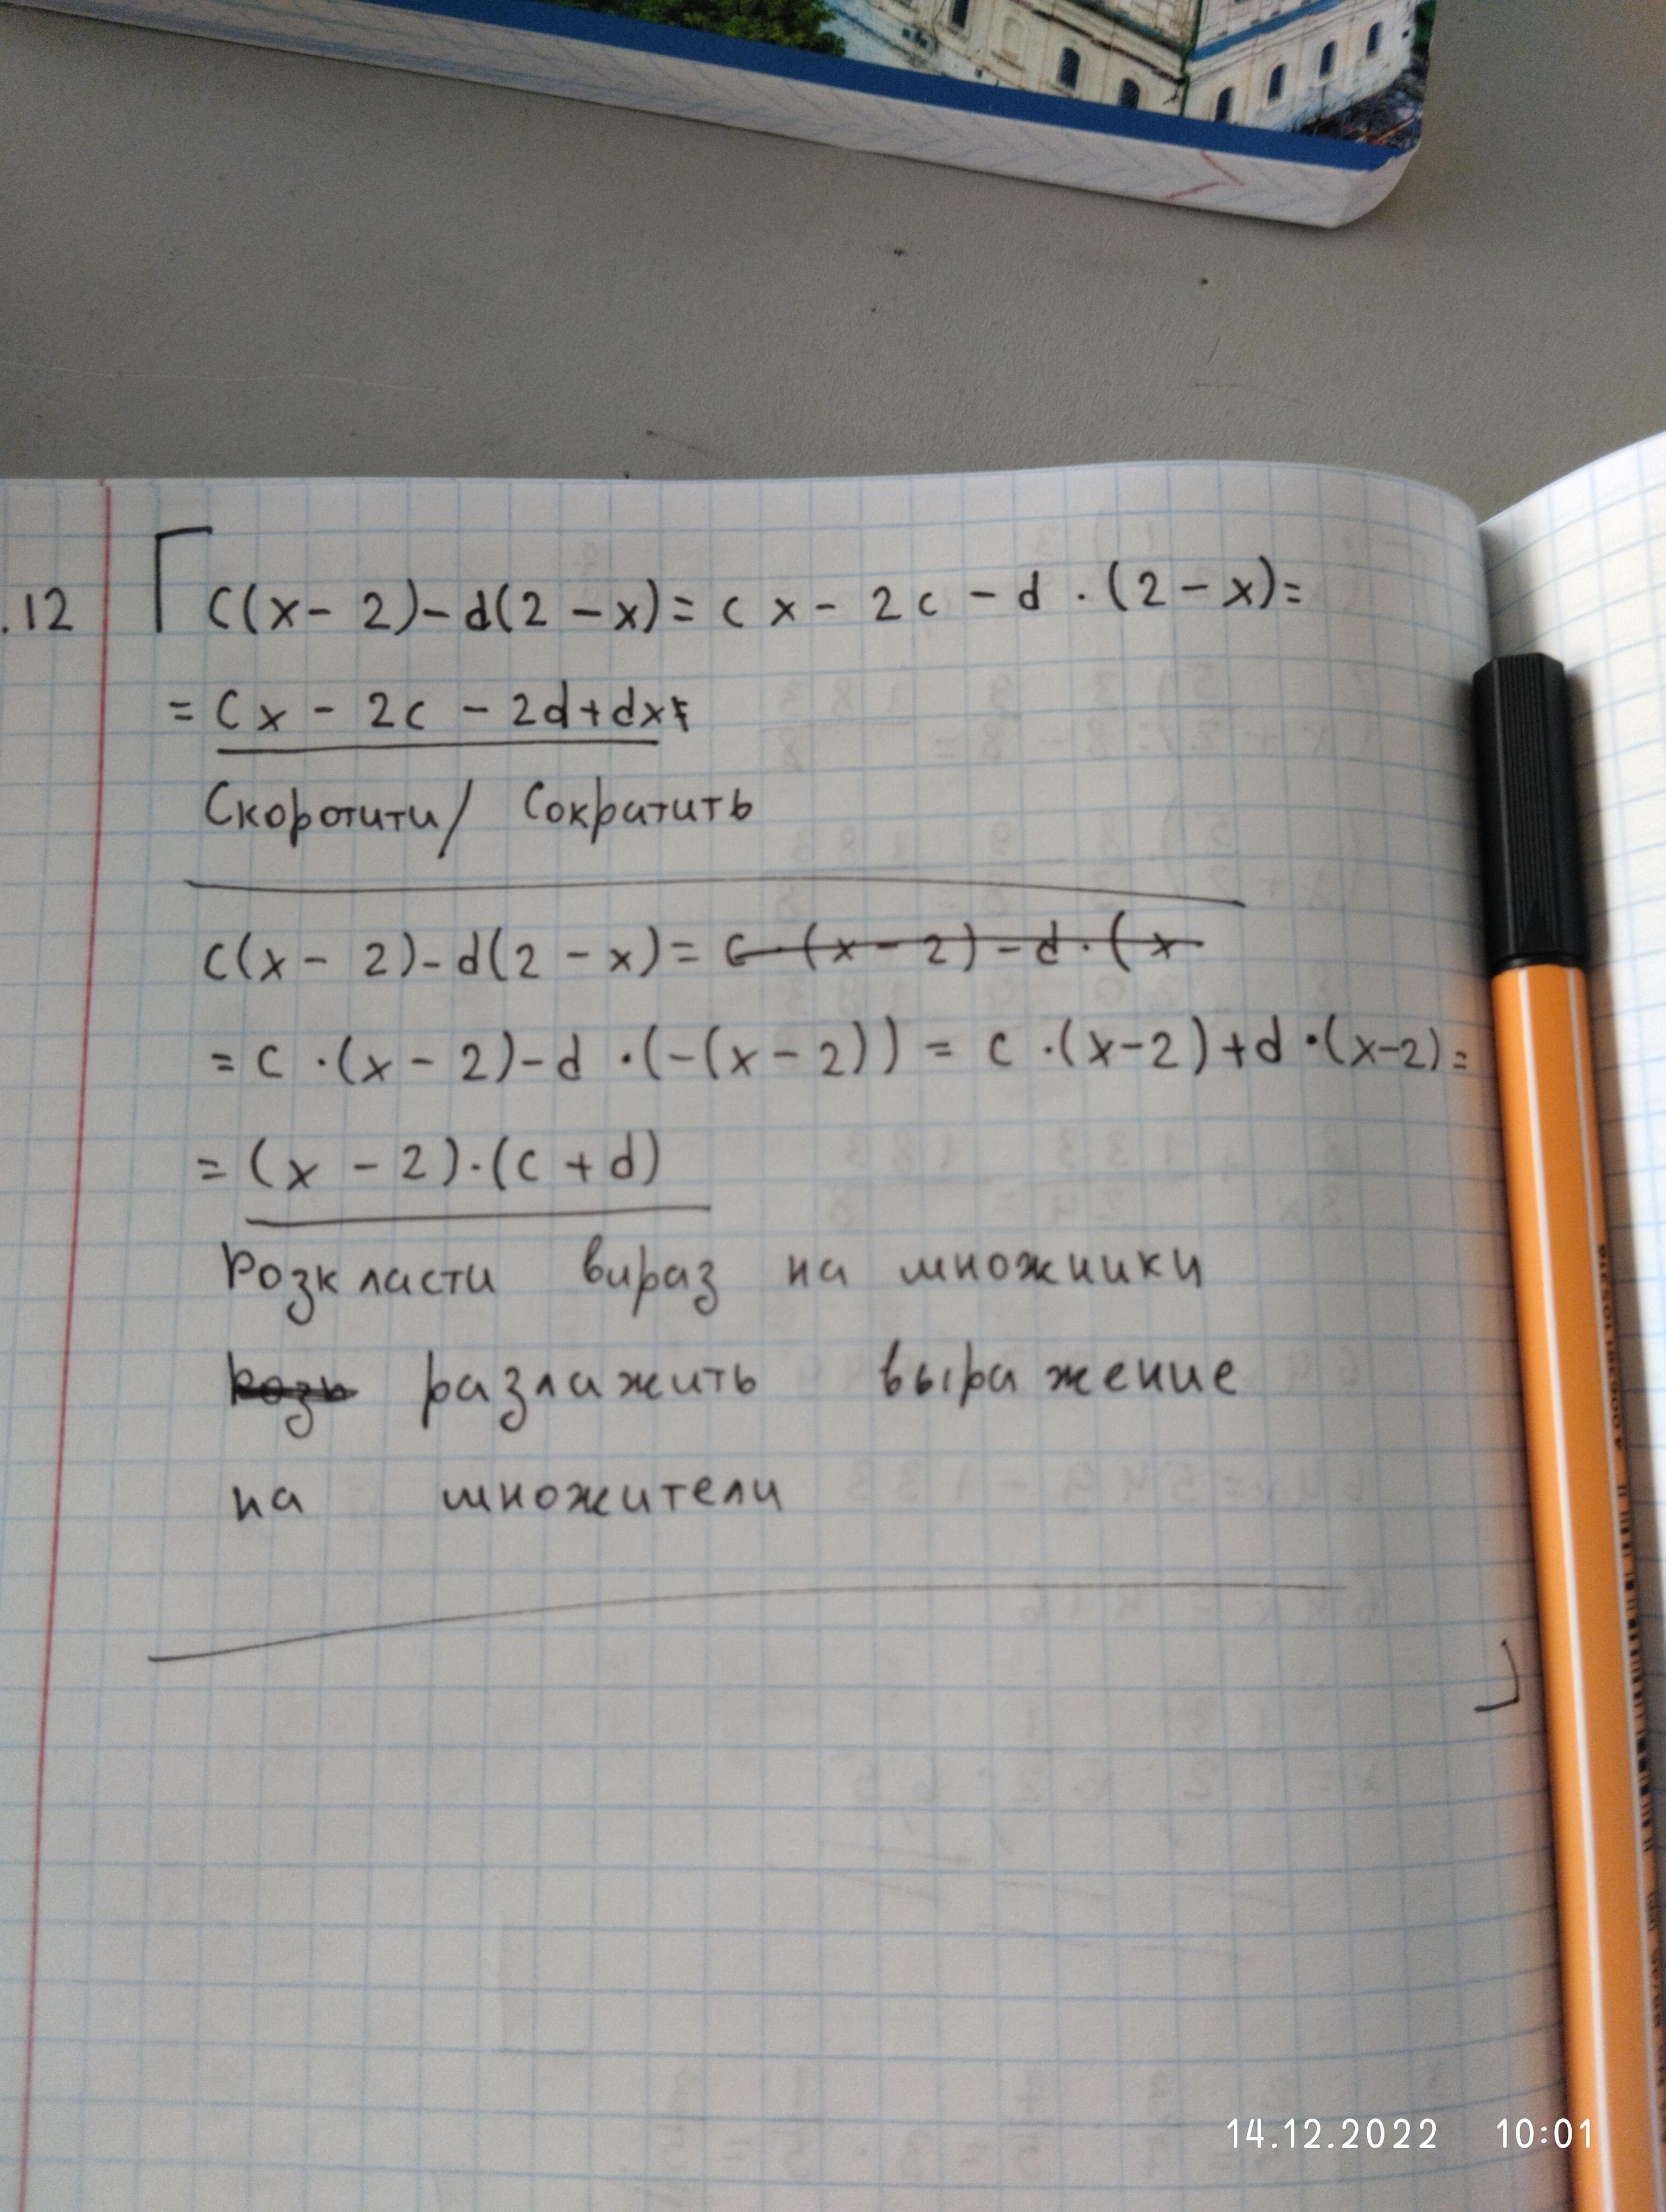 .12 c(x - 2) - d(2 - x) = cx - 2c - d · (2 - x) =
= cx - 2c - 2d + dx
Скоротити / Сократить
c(x - 2) - d(2 - x) = c · (x - 2) - d · (x
= c · (x - 2) - d · (-(x - 2)) = c · (x - 2) + d · (x - 2) =
= (x - 2) · (c + d)
Розкласти вираз на множники
розь разлажить выражение
на множители
14.12.2022 10:01